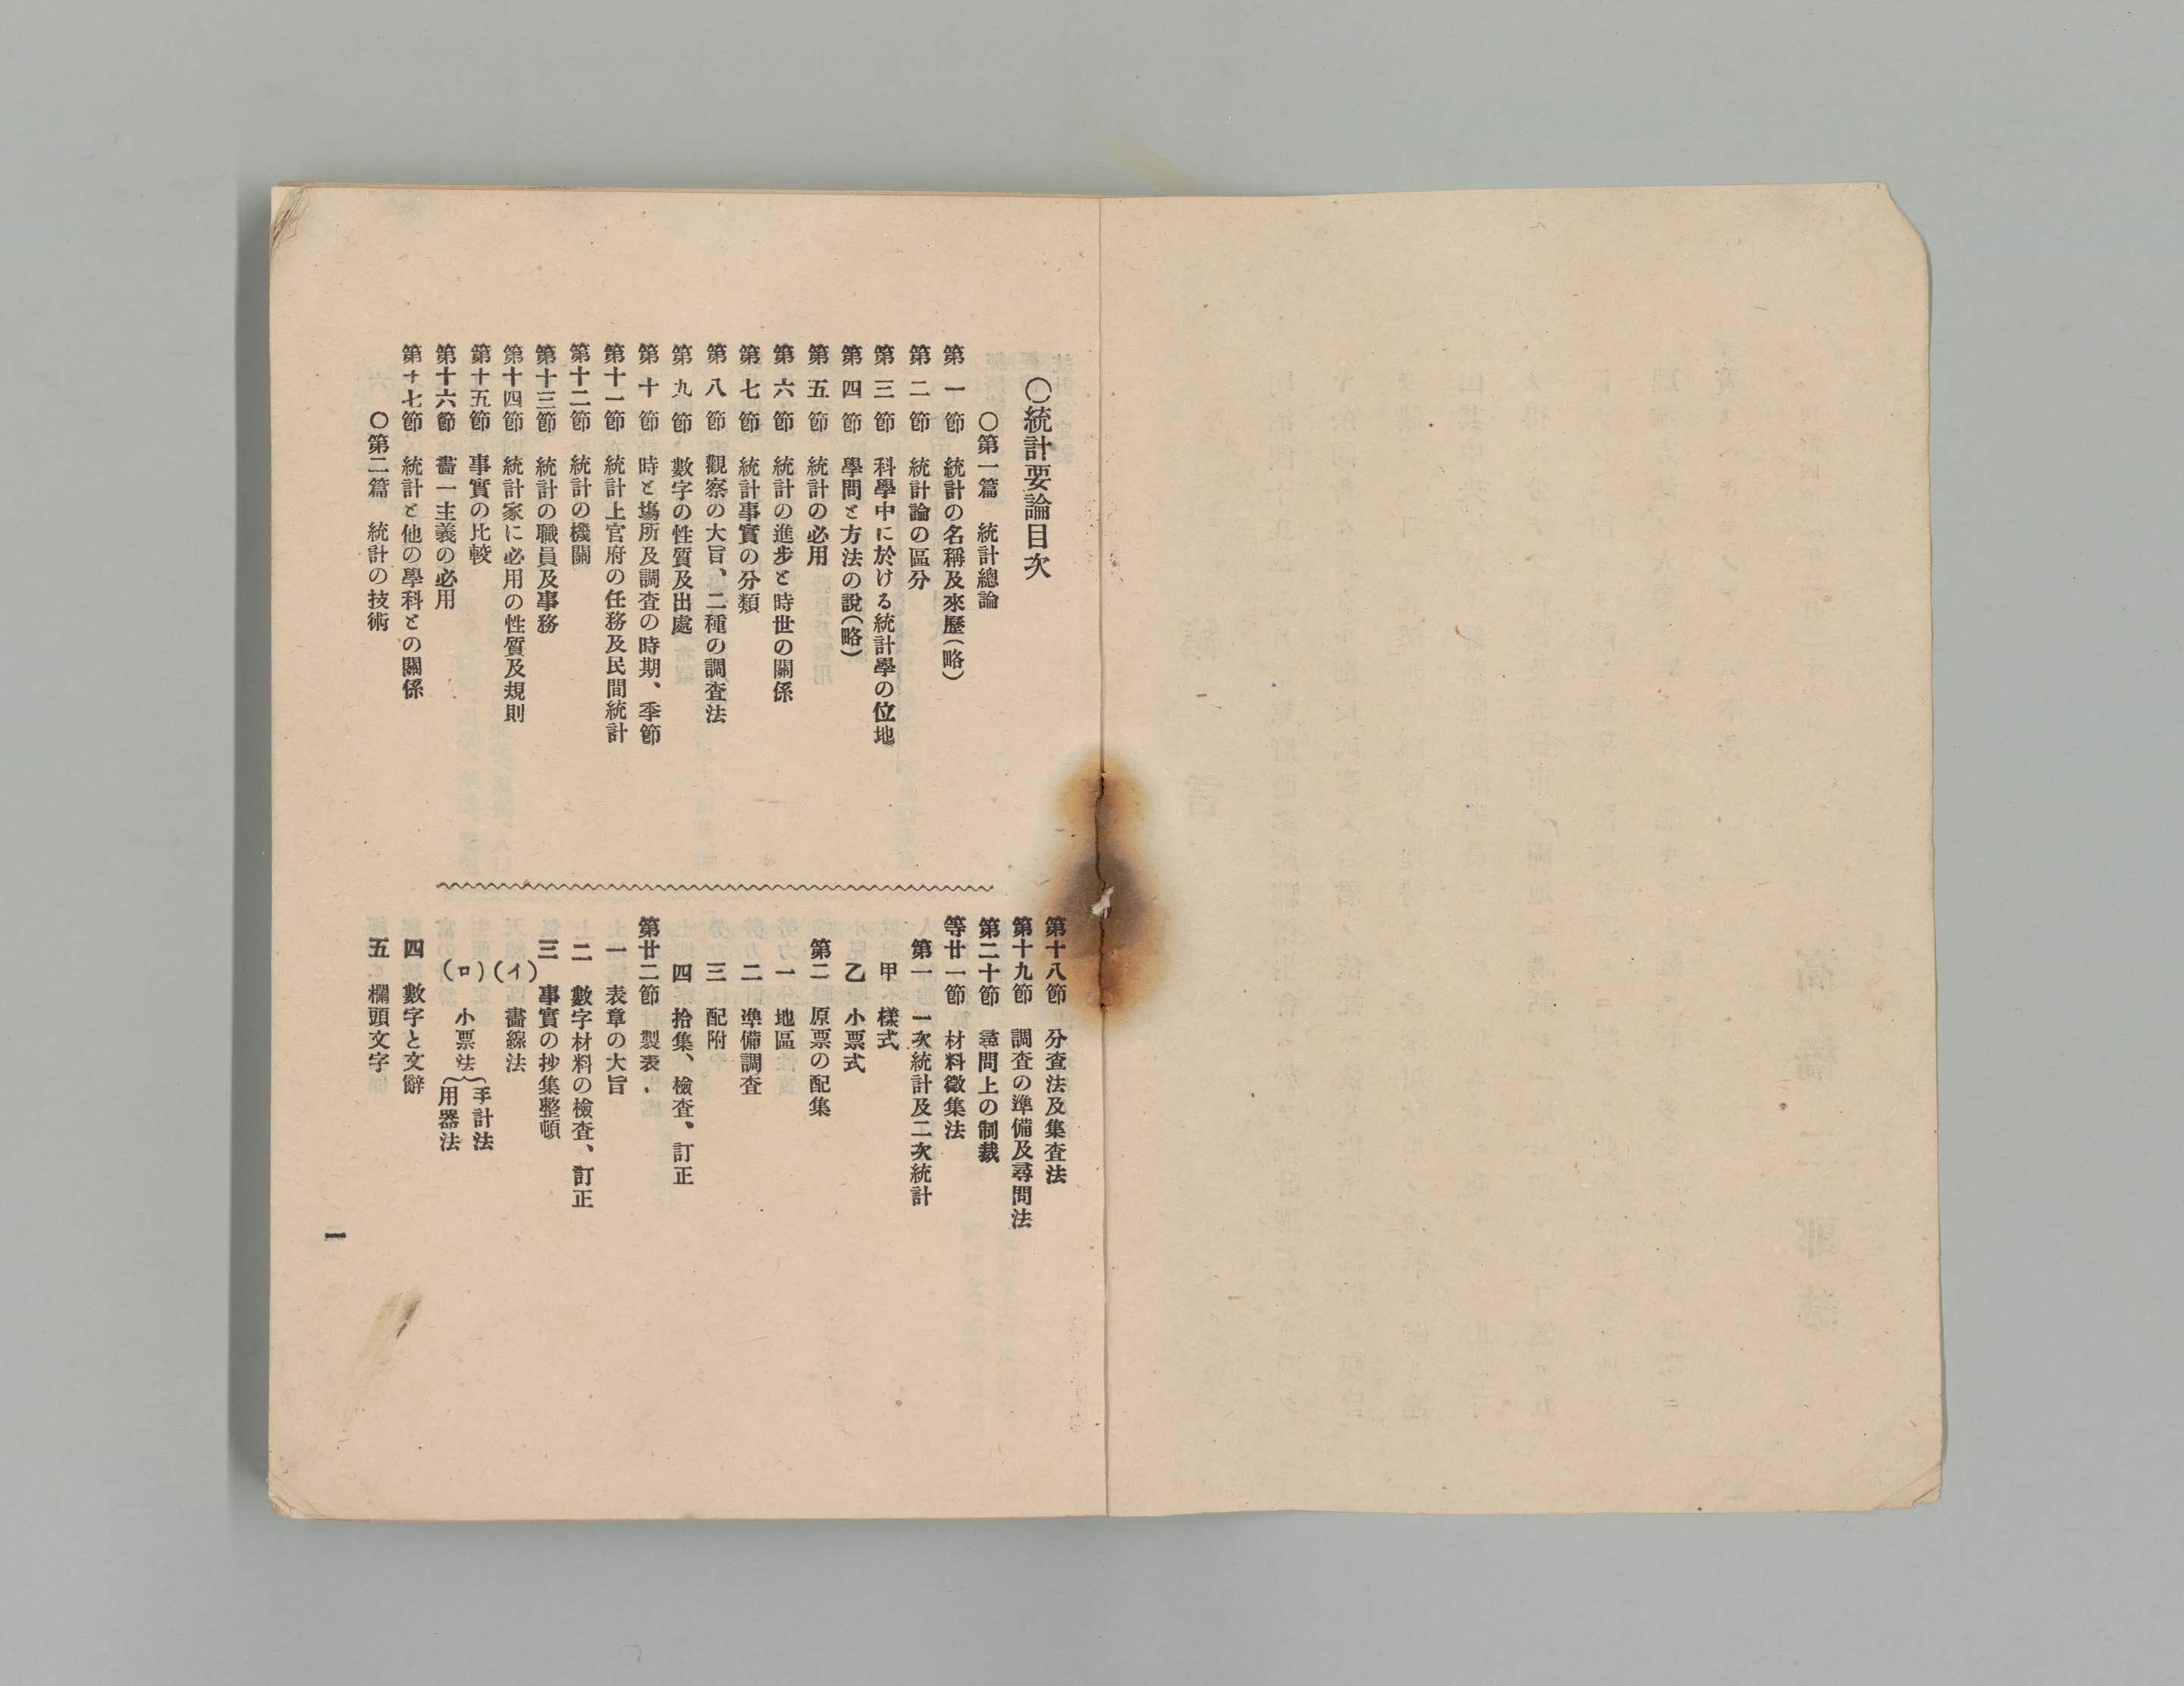 〇統計要論目次
〇第一篇　統計總論
第一節　統計の名稱及來歷(略)
第二節　統計論の區分
第三節　科學中に於ける統計學の位地
第四節　學問と方法の說(略)
第五節　統計の必用
第六節　統計の進步と時世の關係
第七節　統計事實の分類
第八節　觀察の大旨、二種の調查法
第九節　數字の性質及出處
第十節　時と塲所及調查の時期、季節
第十一節　統計上官府の任務及民間統計
第十二節　統計の機關
第十三節　統計の職員及事務
第十四節　統計家に必用の性質及規則
第十五節　事實の比較
第十六節　畵一主義の必用
第十七節　統計と他の學科との關係
〇第二篇　統計の技術
第十八節　分查法及集查法
第十九節　調查の準備及尋問法
第二十節　尋問上の制裁
等廿一節　材料徵集法
第一　一次統計及二次統計
甲　樣式
乙　小票式
第二　原票の配集
一　地區
二　準備調查
三　配附
四　拾集、檢查、訂正
第廿二節　製表
一　表章の大旨
二　數字材料の檢查、訂正
三　事實の抄集整頓
(イ)　畵線法
(ロ)　小票法
手計法
用器法
四　數字と文辭
五　欄頭文字
一